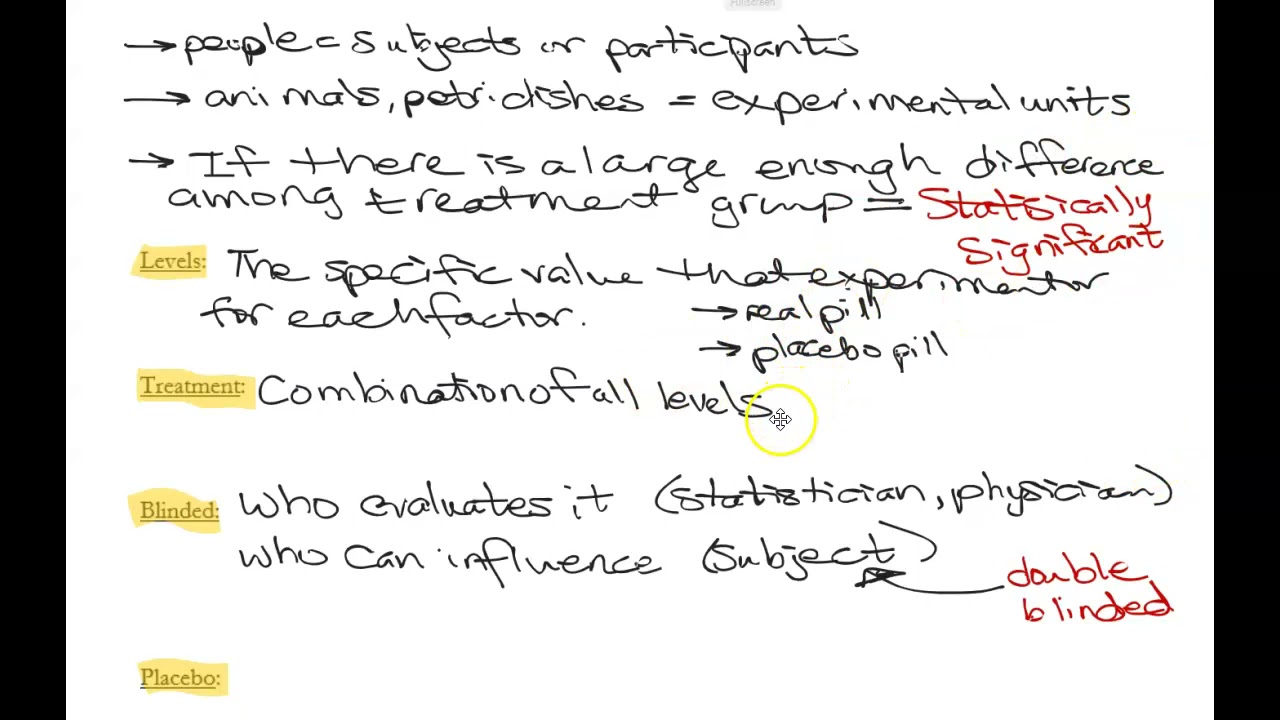 Fullscreen
→ people = subjects or participants
→ animals, petri dishes = experimental units
→ If there is a large enough difference
among treatment group = Statisically
Significant
Levels: The specific value that experimentor
for each factor. → real pill
→ placebo pill
Treatment: Combination of all levels
Blinded: who evaluates it (statistician, physician)
who can influence (subject)
double
blinded
Placebo: